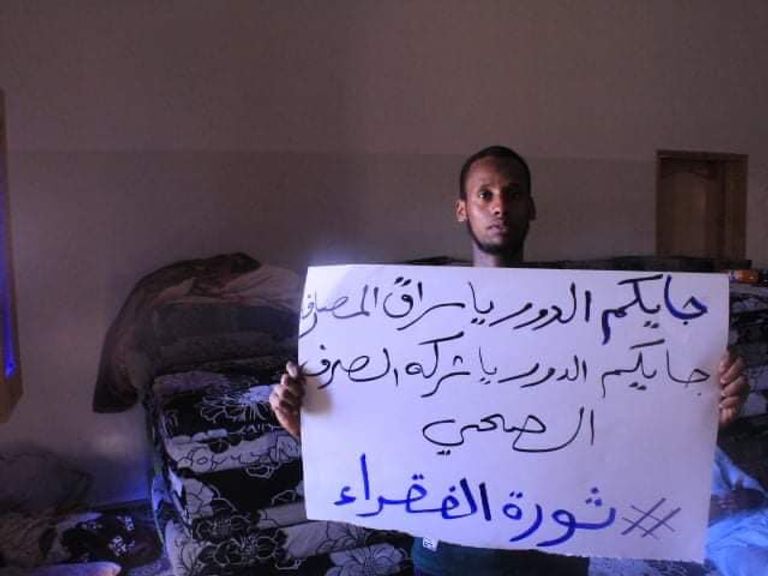 جايكم الدور يا سراق المصارف
جايكم الدور يا شركه الصرف
الصحي
# ثورة الفقراء